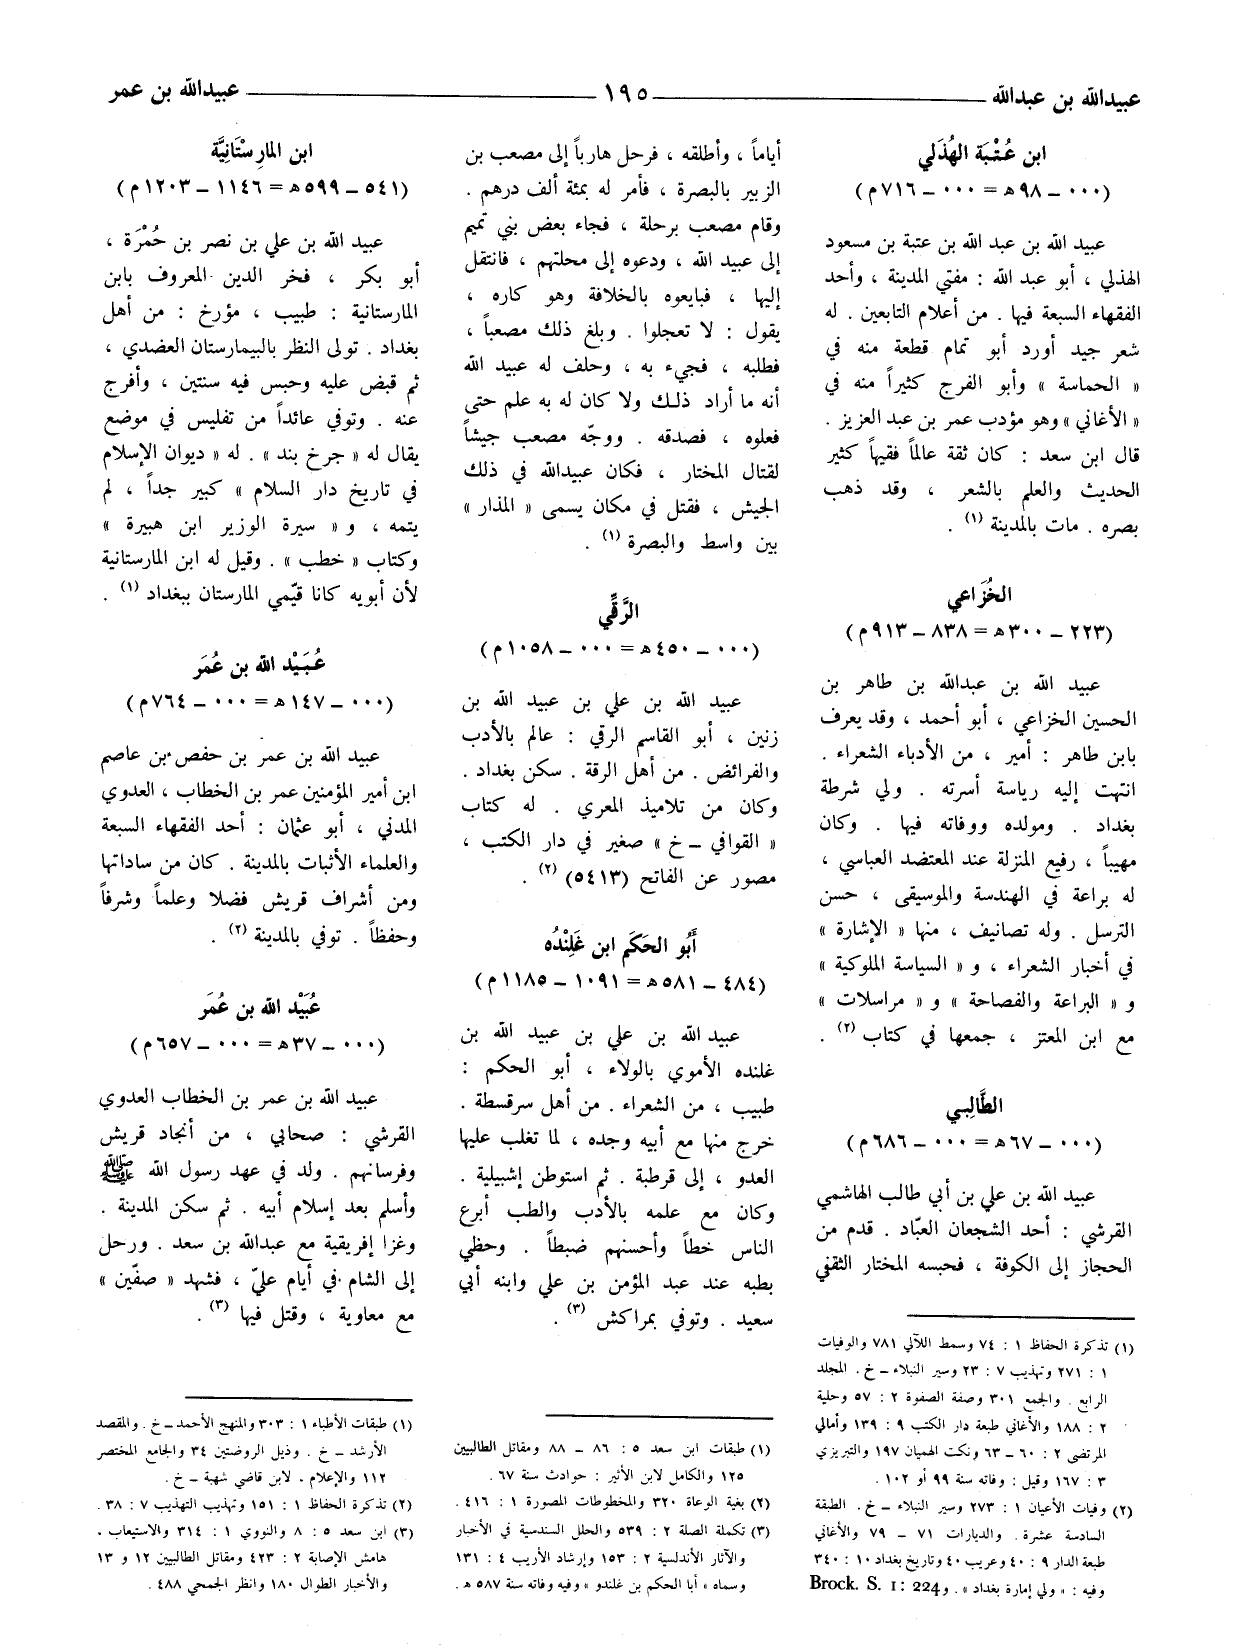 عبيدالله بن عبدالله ـــ ١٩٥ ـــ عبيدالله بن عمر
ابن عُتْبَة الهُذَلي
(٠٠٠ ــ ٩٨ه = ٠٠٠ ــ ٧١٦م)
عبيد الله بن عبد الله بن عتبة بن مسعود
الهذلي ، أبو عبد الله : مفتي المدينة ، وأحد
الفقهاء السبعة فيها . من أعلام التابعين . له
شعر جيد أورد أبو تمام قطعة منه في
« الحماسة » وأبو الفرج كثيراً منه في
« الأغاني » وهو مؤدب عمر بن عبد العزيز .
قال ابن سعد : كان ثقة عالماً فقيهاً كثير
الحديث والعلم بالشعر ، وقد ذهب
بصره . مات بالمدينة (١) .
الخُزَاعي
(٢٢٣ ــ ٣٠٠ه = ٨٣٨ ــ ٩١٣م)
عبيد الله بن عبدالله بن طاهر بن
الحسين الخزاعي ، أبو أحمد ، وقد يعرف
بابن طاهر : أمير ، من الأدباء الشعراء .
انتهت إليه رياسة أسرته . ولي شرطة
بغداد . ومولده ووفاته فيها . وكان
مهيباً ، رفيع المنزلة عند المعتضد العباسي ،
له براعة في الهندسة والموسيقى ، حسن
الترسل . وله تصانيف ، منها « الإشارة »
في أخبار الشعراء ، و « السياسة الملوكية »
و « البراعة والفصاحة » و « مراسلات »
مع ابن المعتز ، جمعها في كتاب (٢) .
الطَّالِبي
(٠٠٠ ــ ٦٧ه = ٠٠٠ ــ ٦٨٦م)
عبيد الله بن علي بن أبي طالب الهاشمي
القرشي : أحد الشجعان العبّاد . قدم من
الحجاز إلى الكوفة ، فحبسه المختار الثقفي
(١) تذكرة الحفاظ ١ : ٧٤ وسمط اللآلي ٧٨١ والوفيات
١ : ٢٧١ وتهذيب ٧ : ٢٣ وسير النبلاء ــ خ . المجلد
الرابع . والجمع ٣٠١ وصفة الصفوة ٢ : ٥٧ وحلية
٢ : ١٨٨ والأغاني طبعة دار الكتب ٩ : ١٣٩ وأمالي
المرتضى ٢ : ٦٠ ــ ٦٣ ونكت الهميان ١٩٧ والتبريزي
٣ : ١٦٧ وقيل : وفاته سنة ٩٩ أو ١٠٢ .
(٢) وفيات الأعيان ١ : ٢٧٣ وسير النبلاء ــ خ . الطبقة
السادسة عشرة . والديارات ٧١ ــ ٧٩ والأغاني
طبعة الدار ٩ : ٤٠ وعريب ٤٠ وتاريخ بغداد ١٠ : ٣٤٠
وفيه : « ولي إمارة بغداد » . و Brock. S. 1: 224
أياماً ، وأطلقه ، فرحل هارباً إلى مصعب بن
الزبير بالبصرة ، فأمر له بمئة ألف درهم .
وقام مصعب برحلة ، فجاء بعض بني تميم
إلى عبيد الله ، ودعوه إلى محلتهم ، فانتقل
إليها ، فبايعوه بالخلافة وهو كاره ،
يقول : لا تعجلوا . وبلغ ذلك مصعباً ،
فطلبه ، فجيء به ، وحلف له عبيد الله
أنه ما أراد ذلك ولا كان له به علم حتى
فعلوه ، فصدقه . ووجّه مصعب جيشاً
لقتال المختار ، فكان عبيدالله في ذلك
الجيش ، فقتل في مكان يسمى « المذار »
بين واسط والبصرة (١) .
الرَّقِّي
(٠٠٠ ــ ٤٥٠ه = ٠٠٠ ــ ١٠٥٨م)
عبيد الله بن علي بن عبيد الله بن
زنين ، أبو القاسم الرقي : عالم بالأدب
والفرائض . من أهل الرقة . سكن بغداد .
وكان من تلاميذ المعري . له كتاب
« القوافي ــ خ » صغير في دار الكتب ،
مصور عن الفاتح (٥٤١٣) (٢) .
أَبُو الحَكَم ابن غَلِنْدُه
(٤٨٤ ــ ٥٨١ه = ١٠٩١ ــ ١١٨٥م)
عبيد الله بن علي بن عبيد الله بن
غلنده الأموي بالولاء ، أبو الحكم :
طبيب ، من الشعراء . من أهل سرقسطة .
خرج منها مع أبيه وجده ، لما تغلب عليها
العدو ، إلى قرطبة . ثم استوطن إشبيلية .
وكان مع علمه بالأدب والطب أبرع
الناس خطاً وأحسنهم ضبطاً . وحظي
بطبه عند عبد المؤمن بن علي وابنه أبي
سعيد . وتوفي بمراكش (٣) .
(١) طبقات ابن سعد ٥ : ٨٦ ــ ٨٨ ومقاتل الطالبيين
١٢٥ والكامل لابن الأثير : حوادث سنة ٦٧ .
(٢) بغية الوعاة ٣٢٠ والمخطوطات المصورة ١ : ٤١٦ .
(٣) تكملة الصلة ٢ : ٥٣٩ والحلل السندسية في الأخبار
والآثار الأندلسية ٢ : ١٥٣ وإرشاد الأريب ٤ : ١٣١
وسماه « أبا الحكم بن غلندو » وفيه وفاته سنة ٥٨٧ ه .
ابن المارِسْتَانِيَّة
(٥٤١ ــ ٥٩٩ه = ١١٤٦ ــ ١٢٠٣م)
عبيد الله بن علي بن نصر بن حُمْرَة ،
أبو بكر ، فخر الدين المعروف بابن
المارستانية : طبيب ، مؤرخ : من أهل
بغداد . تولى النظر بالبيمارستان العضدي ،
ثم قبض عليه وحبس فيه سنتين ، وأفرج
عنه . وتوفي عائداً من تفليس في موضع
يقال له « جرخ بند » . له « ديوان الإسلام
في تاريخ دار السلام » كبير جداً ، لم
يتمه ، و « سيرة الوزير ابن هبيرة »
وكتاب « خطب » . وقيل له ابن المارستانية
لأن أبويه كانا قيّمي المارستان ببغداد (١) .
عُبَيْد الله بن عُمَر
(٠٠٠ ــ ١٤٧ه = ٠٠٠ ــ ٧٦٤م)
عبيد الله بن عمر بن حفص بن عاصم
ابن أمير المؤمنين عمر بن الخطاب ، العدوي
المدني ، أبو عثمان : أحد الفقهاء السبعة
والعلماء الأثبات بالمدينة . كان من ساداتها
ومن أشراف قريش فضلا وعلماً وشرفاً
وحفظاً . توفي بالمدينة (٢) .
عُبَيْد الله بن عُمَر
(٠٠٠ ــ ٣٧ه = ٠٠٠ ــ ٦٥٧م)
عبيد الله بن عمر بن الخطاب العدوي
القرشي : صحابي ، من أنجاد قريش
وفرسانهم . ولد في عهد رسول الله ﷺ
وأسلم بعد إسلام أبيه . ثم سكن المدينة .
وغزا إفريقية مع عبدالله بن سعد . ورحل
إلى الشام في أيام عليّ ، فشهد « صفّين »
مع معاوية ، وقتل فيها (٣) .
(١) طبقات الأطباء ١ : ٣٠٣ والمنهج الأحمد ــ خ . والمقصد
الأرشد ــ خ . وذيل الروضتين ٣٤ والجامع المختصر
١١٢ والإعلام . لابن قاضي شهبة ــ خ .
(٢) تذكرة الحفاظ ١ : ١٥١ وتهذيب التهذيب ٧ : ٣٨ .
(٣) ابن سعد ٥ : ٨ والنووي ١ : ٣١٤ والاستيعاب ،
هامش الإصابة ٢ : ٤٢٣ ومقاتل الطالبيين ١٢ و ١٣
والأخبار الطوال ١٨٠ وانظر الجمحي ٤٨٨ .